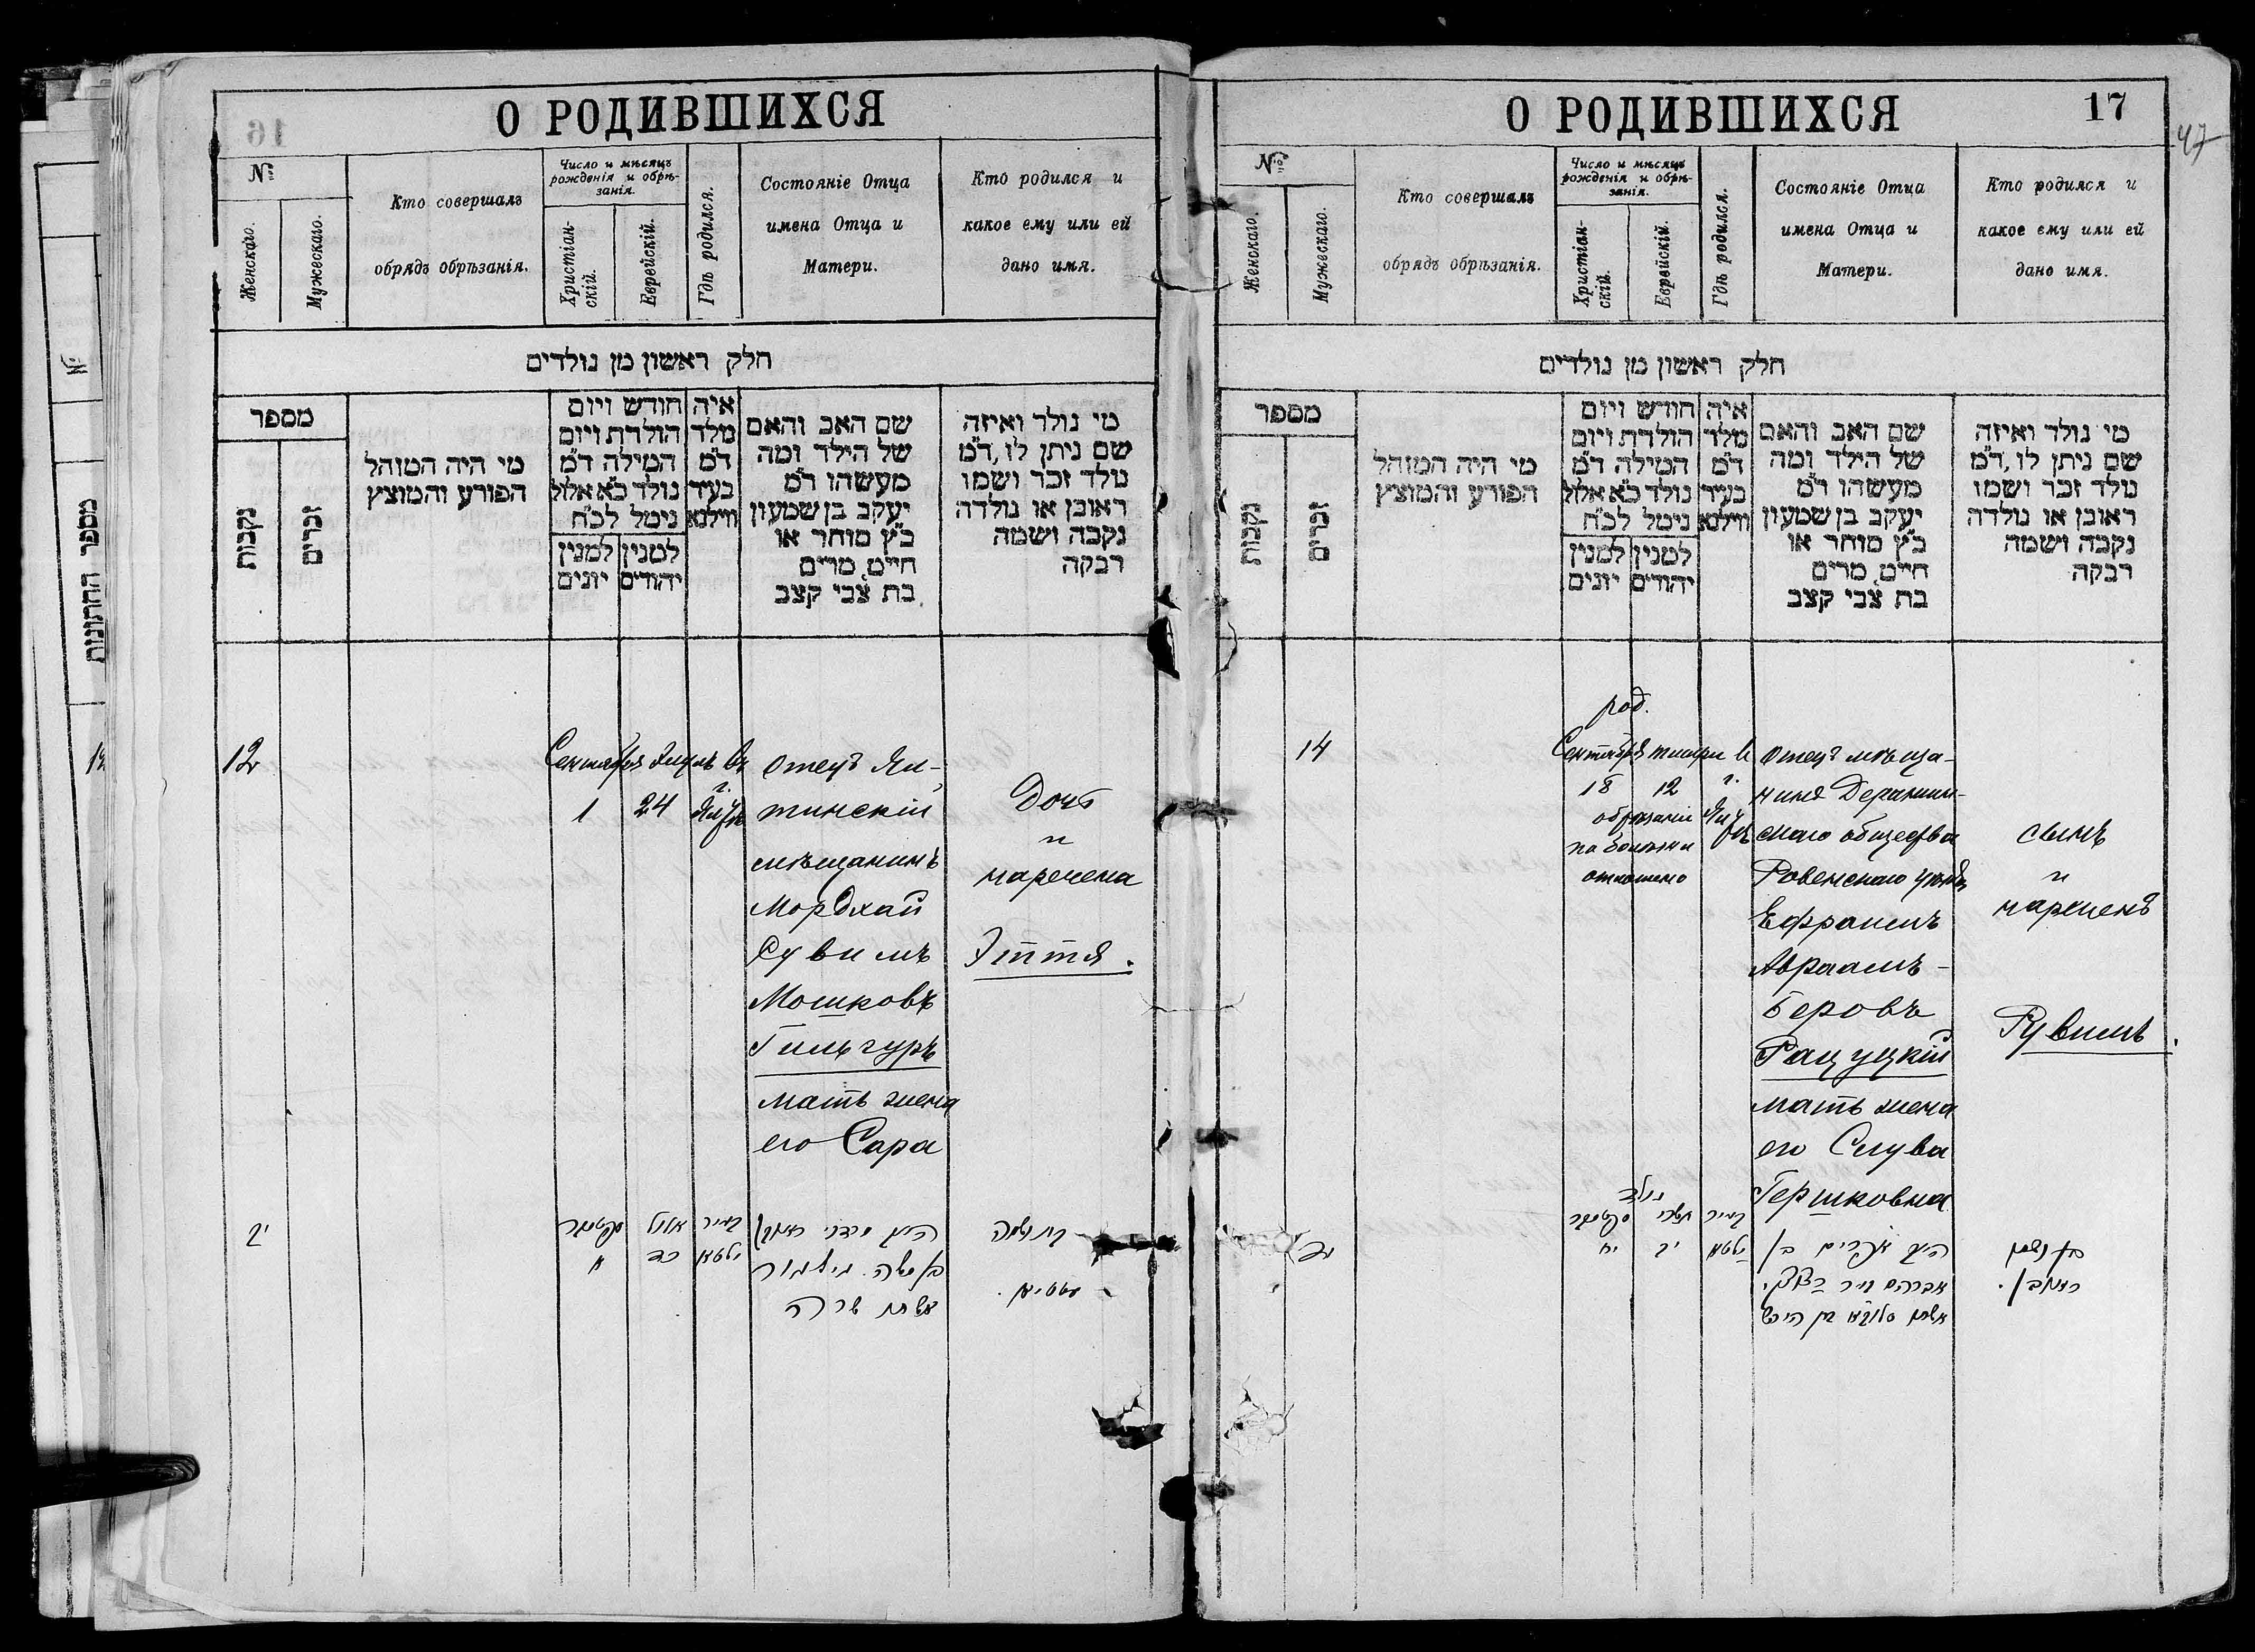 О РОДИВШИХСЯ
16
№
Женскаго.
Мужескаго.
Кто совершалъ
обрядъ обрѣзанія.
Число и мѣсяцъ
рожденія и обрѣ-
занія.
Христіан-
скій.
Еврейскій.
Гдѣ родился.
Состояніе Отца
имена Отца и
Матери.
Кто родился и
какое ему или ей
дано имя.
חלק ראשון מן נולדים
מספר
נקבות
זכרים
מי היה המוהל
הפורע והמוצץ
חודש ויום
הולדת ויום
המילה ד״מ
נולד כ״א אלול
נימל לכ״ח
למנין למנין
יהודים יונים
איה
מלד
ד״מ
בעיר
ווילנא
שם האב והאם
של הילד ומה
מעשהו ד״מ
יעקב בן שמעון
כ״ץ סוחר או
חייט, מרים
בת צבי קצב
מי נולד ואיזה
שם ניתן לו, ד״מ
נולד זכר ושמו
ראובן או נולדה
נקבה ושמה
רבקה
12
Сентября Элулъ въ
1 24
г. Ялтѣ
отецъ Ял-
тинскій
мѣщанинъ
Мордхай
Рувимъ
Мошковъ
Гильгуръ
мать жена
его Сара
Дочь
и
наречена
Эття.
יב
סעפטעמבר אלול בעיר
א כד ילטא
בן משה
אשתו שרה
בת ושמה
עטיא
מספר החתונות
№
О РОДИВШИХСЯ
17
47
№
Женскаго.
Мужескаго.
Кто совершалъ
обрядъ обрѣзанія.
Число и мѣсяцъ
рожденія и обрѣ-
занія.
Христіан-
скій.
Еврейскій.
Гдѣ родился.
Состояніе Отца
имена Отца и
Матери.
Кто родился и
какое ему или ей
дано имя.
חלק ראשון מן נולדים
מספר
נקבות
זכרים
מי היה המוהל
הפורע והמוצץ
חודש ויום
הולדת ויום
המילה ד״מ
נולד כ״א אלול
נימל לכ״ח
למנין למנין
יהודים יונים
איה
מלד
ד״מ
בעיר
ווילנא
שם האב והאם
של הילד ומה
מעשהו ד״מ
יעקב בן שמעון
כ״ץ סוחר או
חייט, מרים
בת צבי קצב
מי נולד ואיזה
שם ניתן לו, ד״מ
נולד זכר ושמו
ראובן או נולדה
נקבה ושמה
רבקה
14
род.
Сентября тишри в
18 12
г. Ялтѣ
обрѣзаніе
по болѣзни
отложено
отецъ мѣща-
нинъ Деражнин-
скаго общества
Ровенскаго уѣзда
Ефраимъ
Авраамъ-
Беровъ
Рацуцкій
мать жена
его Слува
Гершковна
сынъ
и
нареченъ
Рувимъ.
נולד
סעפטעמבר תשרי בעיר
יח יב ילטא
יד
אפרים בן
אברהם
אשתו סלווא בת הירש
בן ושמו
ראובן.